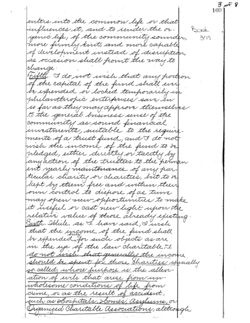 3 of 8
160
enters into the common life or that
influences it, and to render the or-
ganic life, of the community somehow
more firmly knit and more capable
of development instead of disruption
as occasion shall point the way to
change
Fifth. I do not wish that any portion
of the capital of the fund shall ever
be expended or locked temporarily in
philanthropic enterprises save in
so far as they may approve themselves
to the general business sense of the
community as sound financial
investments, suitable to the require-
ments of a trust fund, and I do not
wish the income of the fund to be
pledged, either directly or tacitly by
any action of the trustees to the perman-
ent yearly maintenance of any par-
ticular charity or charities, but to be
kept by them free and within their
own control to dispose of as time
may open new opportunities to make
it useful or cast new light upon the
relative value of those already existing
Sixth. While, as I have said, I wish
that the income of the fund shall
be expended for such objects as are
in the eye of the law charitable, I
do not wish that generally the income
should be spent for those charities usually
so called whose purpose is the allevi-
ation of evils that arise from un-
wholesome conditions of life from
crime, or as the result of accident,
such as Hospitals, Homes, Asylums, or
Organized Charitable Associations, although